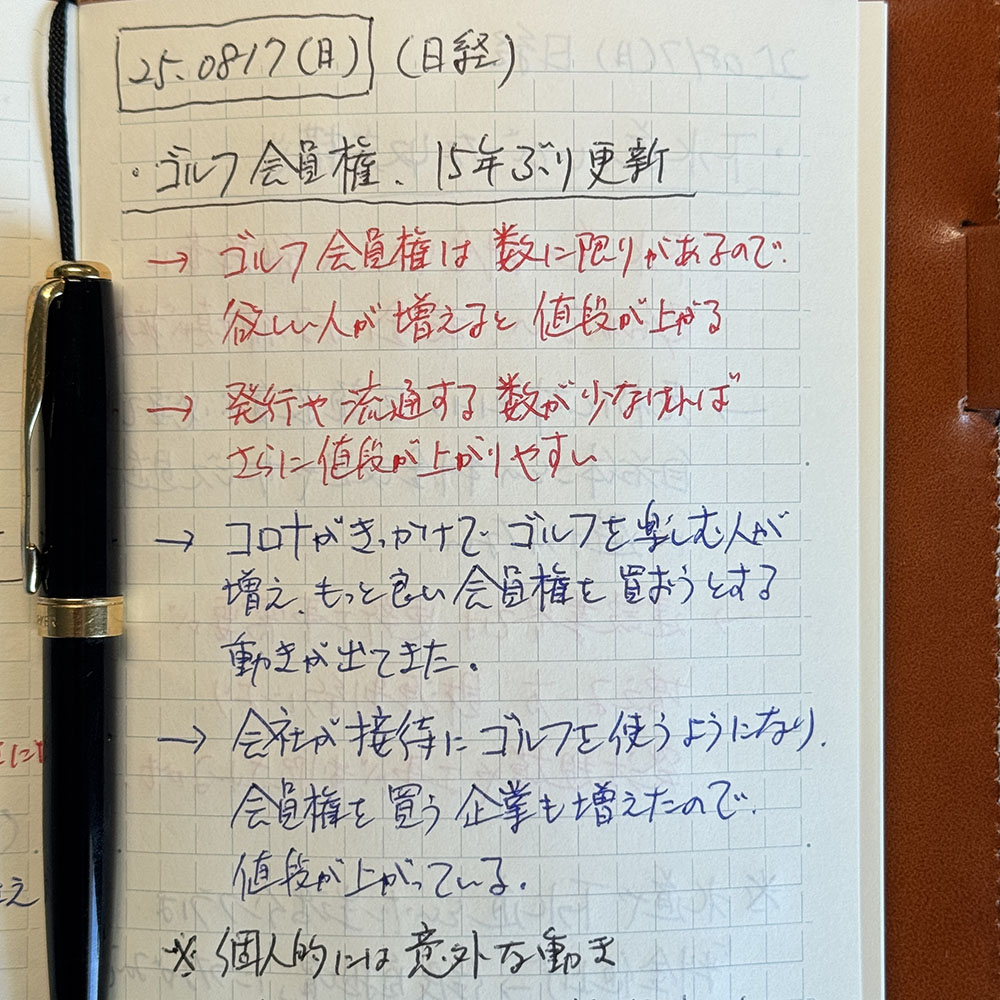 25.0817(日) (日経)
・ゴルフ会員権、15年ぶり更新
→ ゴルフ会員権は数に限りがあるので、
欲しい人が増えると値段が上がる
→ 発行や流通する数が少なければ
さらに値段が上がりやすい
→ コロナがきっかけでゴルフを楽しむ人が
増え、もっと良い会員権を買おうとする
動きが出てきた。
→ 会社が接待にゴルフを使うようになり、
会員権を買う企業も増えたので、
値段が上がっている。
※ 個人的には意外な動き